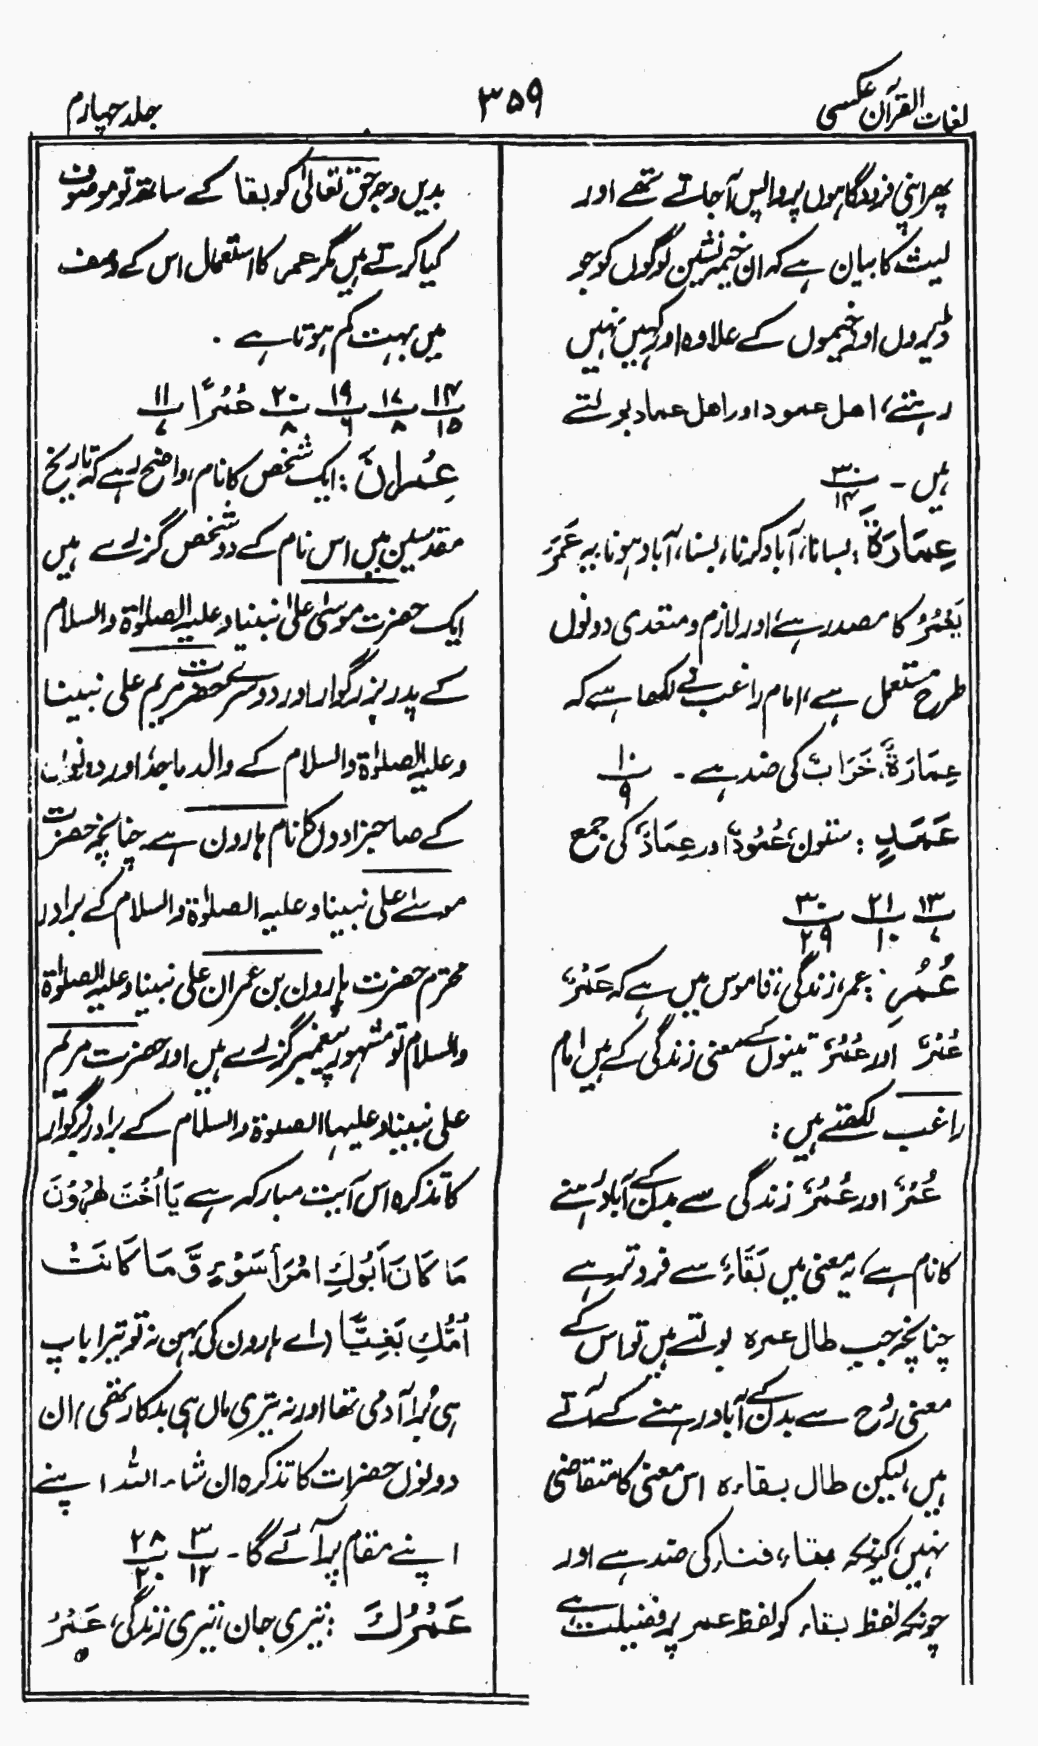 لغات القرآن عکسی
۳۵۹
جلد چہارم
پھر اپنی فرودگاہوں پر واپس آجاتے تھے اور
لیث کا بیان ہے کہ ان خیمہ نشین لوگوں کو جو
ڈیروں اور خیموں کے علاوہ اور کہیں نہیں
رہتے، اھل عمود اور اھل عماد بولتے
ہیں ۔ ۳۰/۱۴
عِمَارَةَ : بسانا، آباد کرنا، بسنا، آباد ہونا یہ عَمَرَ
یَعْمُرُ کا مصدر ہے، اور لازم و متعدی دونوں
طرح مستعمل ہے، امام راغب نے لکھا ہے کہ
عِمَارَةٌ، خَرَابٌ کی ضد ہے ۔ ۱۰/۹
عَمَدٍ : ستون، عُمُودٌ اور عِمَادٌ کی جمع
۱۳/۷ ۲۱/۱۰ ۳۰/۲۹
عُمُرِ : عمر، زندگی، قاموس میں ہے کہ عَمْرٌ،
عُمْرٌ اور عُمُرٌ تینوں کے معنی زندگی کے ہیں امام
راغب لکھتے ہیں :
عُمْرٌ اور عُمُرٌ زندگی سے بدن کے آباد رہنے
کا نام ہے، یہ معنی میں بَقَاءٌ سے فروتر ہے
چنانچہ جب طال عمرہ بولتے ہیں تو اس کے
معنی روح سے بدن کے آباد رہنے کے لئے
ہیں، لیکن طال بقاءہ اس معنی کا متقاضی
نہیں، کیونکہ بقاء، فناء کی ضد ہے اور
چونکہ لفظ بقاء کو لفظ عمر پر فضیلت ہے
بدیں وجہ حق تعالیٰ کو بقا کے ساتھ تو موصوف
کیا کرتے ہیں مگر عمر کا استعمال اس کے وصف
میں بہت کم ہوتا ہے ۔
۱۴/۱۵ ۱۷/۸ ۱۹/۶ ۲۰/۸ عُمُرًا ۱۱/۷
عِمْرَانَ : ایک شخص کا نام، واضح رہے کہ تاریخ
مقدسین میں اس نام کے دو شخص گزرے ہیں
ایک حضرت موسٰی علیٰ نبینا و علیہ الصلوٰة والسلام
کے پدر بزرگوار اور دوسرے حضرت مریم علی نبینا
و علیہ الصلوٰة والسلام کے والد ماجد، اور دونوں
کے صاحبزادوں کا نام ہارون ہے، چنانچہ حضرت
موسے علی نبینا و علیہ الصلوٰة والسلام کے برادر
محترم حضرت ہارون بن عمران علی نبینا و علیہ الصلوٰة
والسلام تو مشہور پیغمبر گزرے ہیں اور حضرت مریم
علی نبینا و علیہا الصلوٰة والسلام کے برادر بزرگوار
کا تذکرہ اس آیت مبارکہ ہے یَا اُخْتَ هٰرُوْنَ
مَا کَانَ اَبُوكِ امْرَأَ سَوْءٍ وَّ مَا کَانَتْ
اُمُّكِ بَغِيًّا (اے ہارون کی بہن نہ تو تیرا باپ
ہی بُرا آدمی تھا اور نہ تیری ماں ہی بدکار تھی) ان
دونوں حضرات کا تذکرہ ان شاء اللہ اپنے
اپنے مقام پر آئے گا ۔ ۳/۱۲ ۲۸/۲۰
عَمْرُكَ : تیری جان، تیری زندگی، عَمْرُ